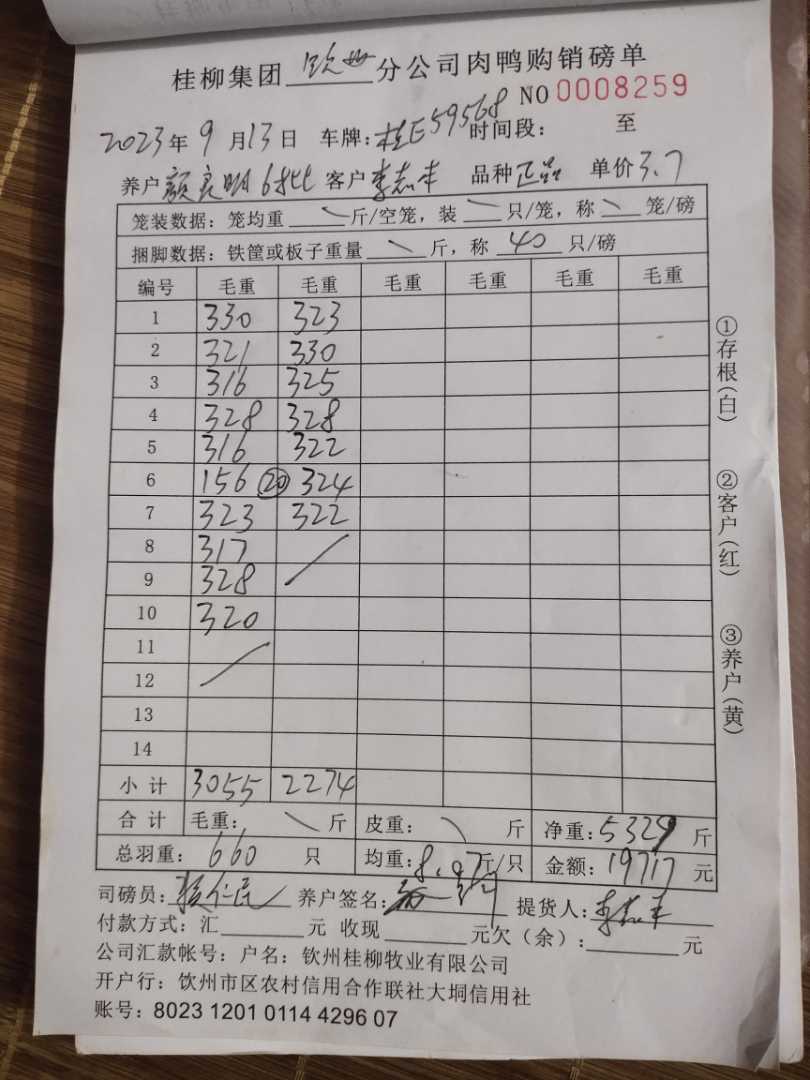 桂柳集团 钦州 分公司肉鸭购销磅单
NO 0008259
2023年9月13日 车牌：桂E59568 时间段： 至
养户 颜良明6批 客户 李志丰 品种 正品 单价 3.7
笼装数据：笼均重 \ 斤/空笼，装 \ 只/笼，称 \ 笼/磅
捆脚数据：铁筐或板子重量 \ 斤，称 40 只/磅
编号 毛重 毛重 毛重 毛重 毛重 毛重
1 330 323
2 321 330
3 316 325
4 328 328
5 316 322
6 156 ⑳ 324
7 323 322
8 317 /
9 328
10 320
11 /
12
13
14
小计 3055 2274
合计 毛重： \ 斤 皮重： \ 斤 净重：5329 斤
总羽重：660 只 均重：8.07斤/只 金额：19717 元
司磅员： 养户签名： 提货人：李志丰
付款方式：汇 元 收现 元欠（余）： 元
公司汇款帐号：户名：钦州桂柳牧业有限公司
开户行：钦州市区农村信用合作联社大垌信用社
账号：8023 1201 0114 4296 07
①存根（白）
②客户（红）
③养户（黄）